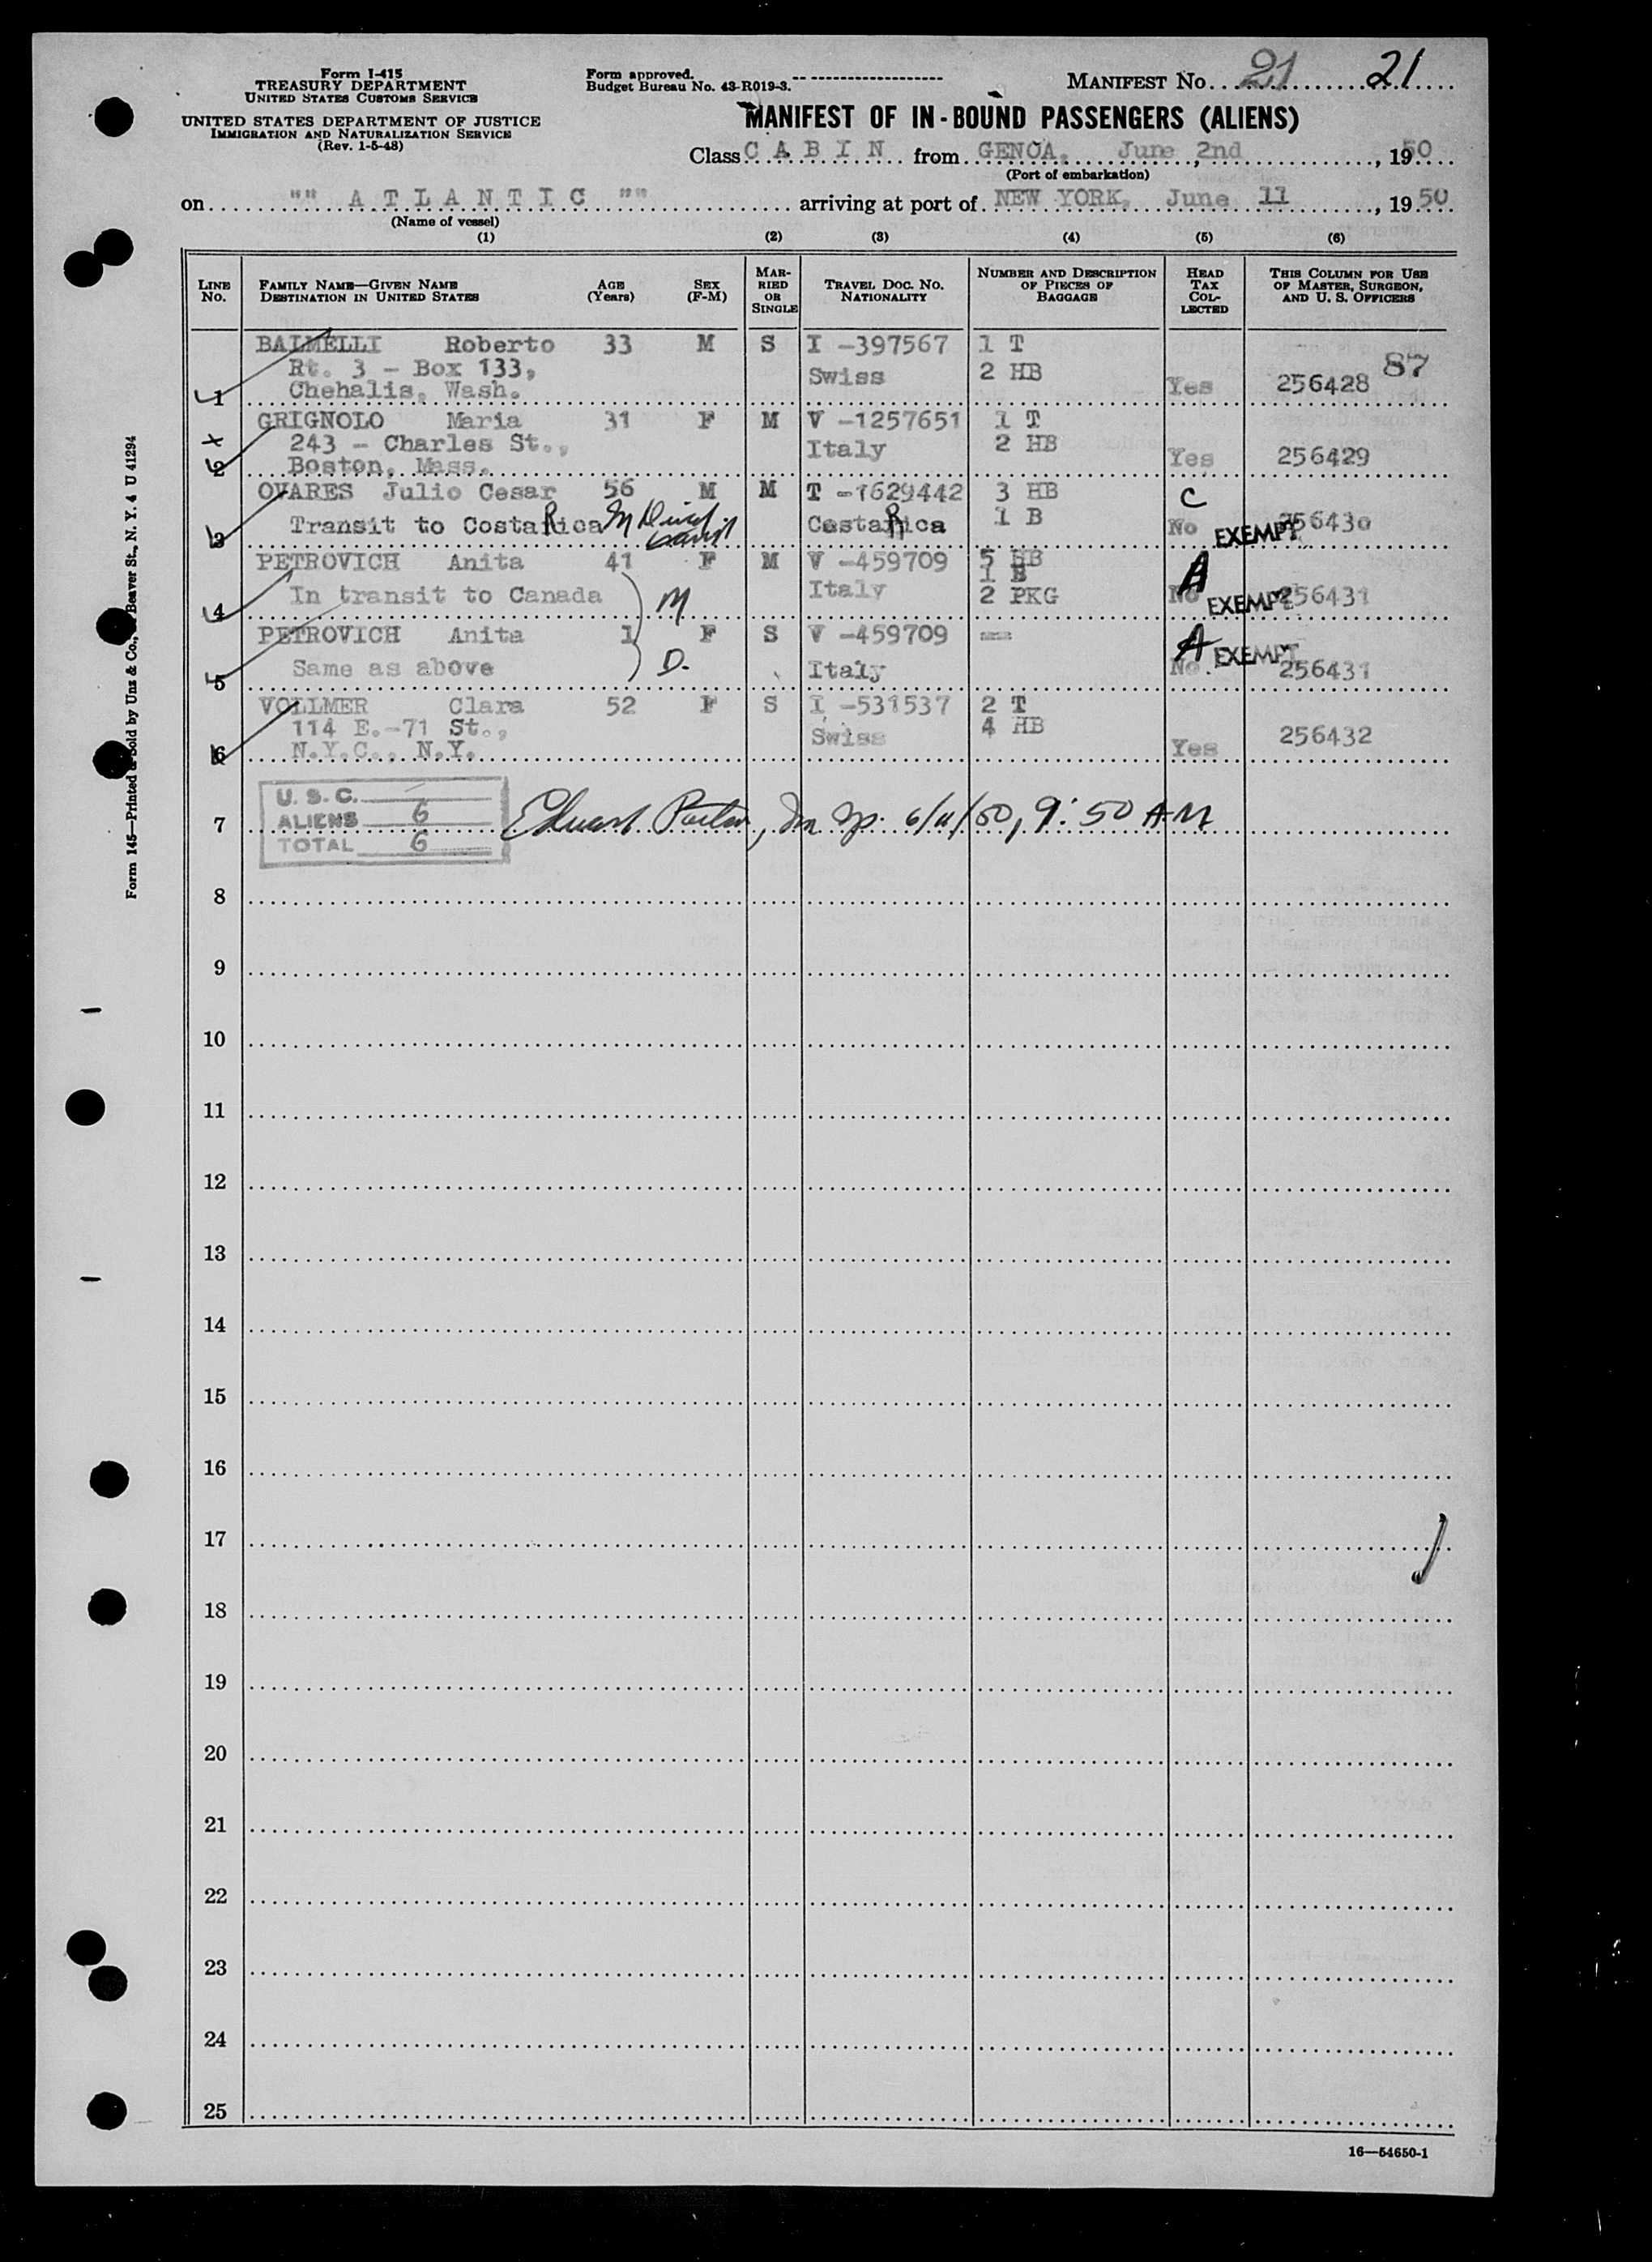 Form I-415
TREASURY DEPARTMENT
UNITED STATES CUSTOMS SERVICE
UNITED STATES DEPARTMENT OF JUSTICE
IMMIGRATION AND NATURALIZATION SERVICE
(Rev. 1-5-48)
Form approved.
Budget Bureau No. 43-R019-3.
MANIFEST No. 21 21
MANIFEST OF IN-BOUND PASSENGERS (ALIENS)
Class CABIN from GENOA, June 2nd, 1950
(Port of embarkation)
on "" ATLANTIC "" arriving at port of NEW YORK, June 11, 1950
(Name of vessel)
(1) (2) (3) (4) (5) (6)
LINE No. FAMILY NAME—GIVEN NAME DESTINATION IN UNITED STATES AGE (Years) SEX (F-M) MARRIED OR SINGLE TRAVEL DOC. NO. NATIONALITY NUMBER AND DESCRIPTION OF PIECES OF BAGGAGE HEAD TAX COLLECTED THIS COLUMN FOR USE OF MASTER, SURGEON, AND U. S. OFFICERS
BALMELLI Roberto 33 M S I -397567 1 T
Rt. 3 - Box 133, Swiss 2 HB 87
1 Chehalis, Wash. Yes 256428
GRIGNOLO Maria 31 F M V -1257651 1 T
x 243 - Charles St., Italy 2 HB
2 Boston, Mass. Yes 256429
OVARES Julio Cesar 56 M M T -1629442 3 HB C
3 Transit to Costa Rica M Costa Rica 1 B No EXEMPT 256430
PETROVICH Anita 41 F M V -459709 5 HB
1 B A
4 In transit to Canada M Italy 2 PKG No EXEMPT 256431
PETROVICH Anita 1 F S V -459709 -- A
5 Same as above D. Italy No. EXEMPT 256431
VOLLMER Clara 52 F S I -531537 2 T
114 E.-71 St., Swiss 4 HB
6 N.Y.C., N.Y. Yes 256432
U. S. C. —
ALIENS 6
TOTAL 6
7 6/11/50, 9:50 AM
8
9
10
11
12
13
14
15
16
17
18
19
20
21
22
23
24
25
16—54650-1
Form 145—Printed & Sold by Unz & Co., Beaver St., N. Y. 4 U 41294